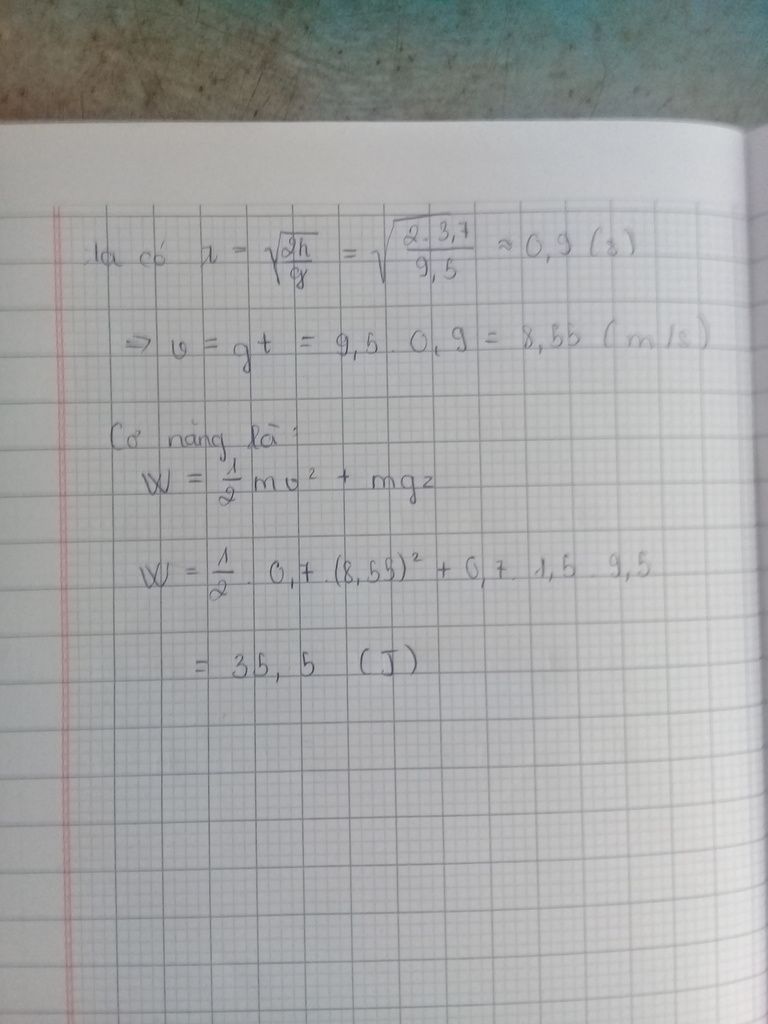 Ta có t = √(2h/g) = √(2.3,7/9,5) ≈ 0,9 (s)
=> v = gt = 9,5 . 0,9 = 8,55 (m/s)
Cơ năng là:
W = 1/2 mv² + mgz
W = 1/2 . 0,7 . (8,55)² + 0,7 . 1,5 . 9,5
= 35,5 (J)